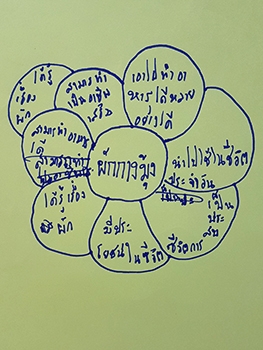 ได้รู้
เรื่อง
ผัก
สามารถทำ
เป็นอาชีพ
เอาไปทำอา
หารได้หลาย
อย่างได้
สามารถทำอาหาร
ได้
ผักกางมุ้ง
นำไปใช้ในชีวิต
ประจำวัน
ได้รู้เรื่อง
ผัก
มีประ
โยชน์ในชีวิต
เป็น
ประ
สบ
ชีวิตการ